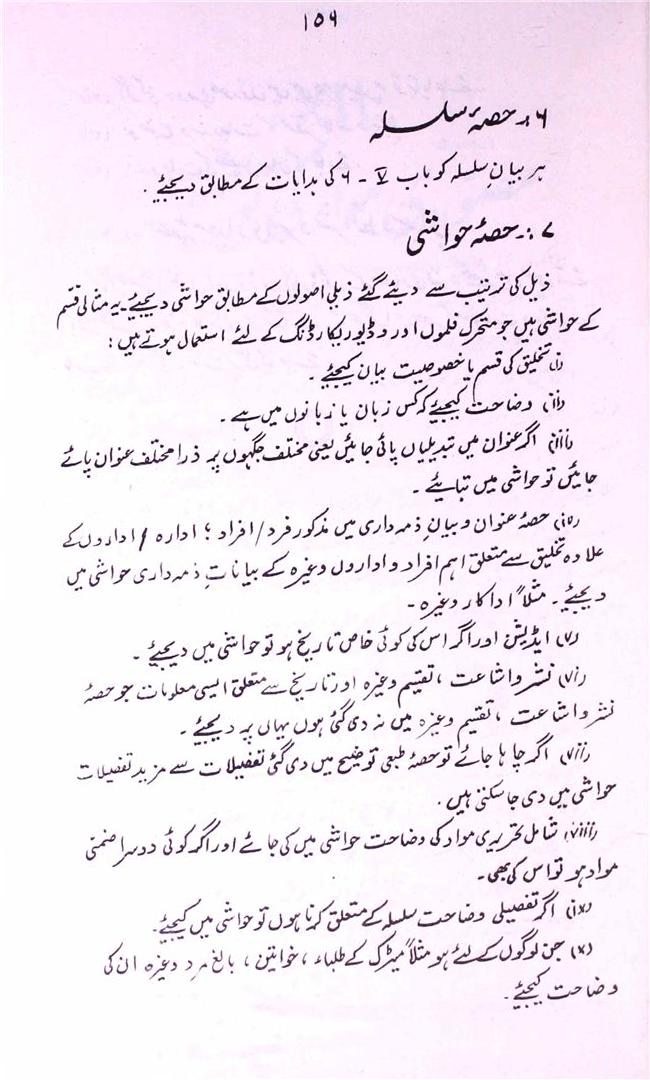 ۱۵۶
۶:۔ حصۂ سلسلہ
ہر بیانِ سلسلہ کو باب V ۔ ۶ کی ہدایات کے مطابق دیجئے ۔
۷:۔ حصۂ حواشی
ذیل کی ترتیب سے دیئے گئے ذیلی اصولوں کے مطابق حواشی دیجیئے ۔ یہ مثالی قسم
کے حواشی ہیں جو متحرک فلموں اور وڈیو ریکارڈنگ کے لئے استعمال ہوتے ہیں :
(i) تخلیق کی قسم یا خصوصیت بیان کیجئے ۔
(ii) وضاحت کیجیئے کہ کس زبان یا زبانوں میں ہے ۔
(iii) اگر عنوان میں تبدیلیاں پائی جائیں یعنی مختلف جگہوں پر ذرا مختلف عنوان پائے
جائیں تو حواشی میں بتایئے ۔
(iv) حصۂ عنوان و بیانِ ذمہ داری میں مذکور فرد / افراد ؛ ادارہ / اداروں کے
علاوہ تخلیق سے متعلق اہم افراد و اداروں وغیرہ کے بیاناتِ ذمہ داری حواشی میں
دیجیئے ۔ مثلاً اداکار وغیرہ ۔
(v) ایڈیشن اور اگر اس کی کوئی خاص تاریخ ہو تو حواشی میں دیجیئے ۔
(vi) نشر و اشاعت ، تقیم وغیرہ اور تاریخ سے متعلق ایسی معلومات جو حصۂ
نشر و اشاعت ، تقیم وغیرہ میں نہ دی گئی ہوں یہاں پر دیجیئے ۔
(vii) اگر چاہا جائے تو حصۂ طبعی توضیح میں دی گئی تفصیلات سے مزید تفصیلات
حواشی میں دی جا سکتی ہیں ۔
(viii) شامل تحریری مواد کی وضاحت حواشی میں کی جائے اور اگر کوئی دوسرا ضمنی
مواد ہو تو اس کی بھی ۔
(ix) اگر تفصیلی وضاحت سلسلہ کے متعلق کرنا ہوں تو حواشی میں کیجیئے ۔
(x) جن لوگوں کے لئے ہو مثلاً میٹرک کے طلباء ، خواتین ، بالغ مرد وغیرہ ان کی
وضاحت کیجیئے ۔